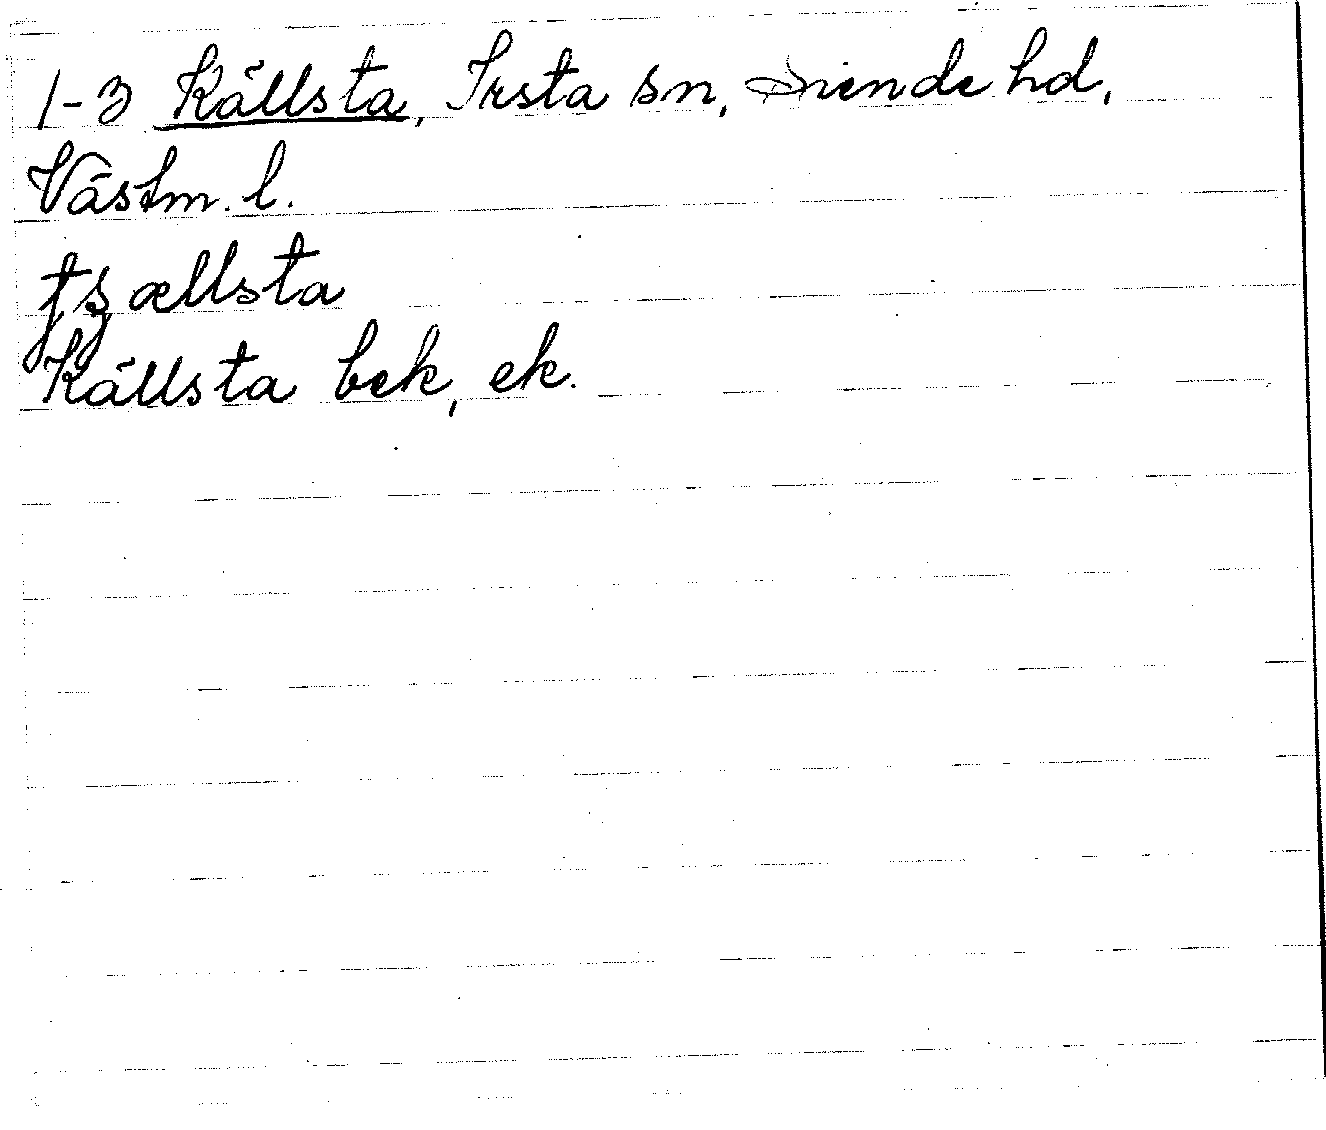 1-3 Källsta, Irsta sn, Siende hd,
Västm. l.
Källsta bek, ek.